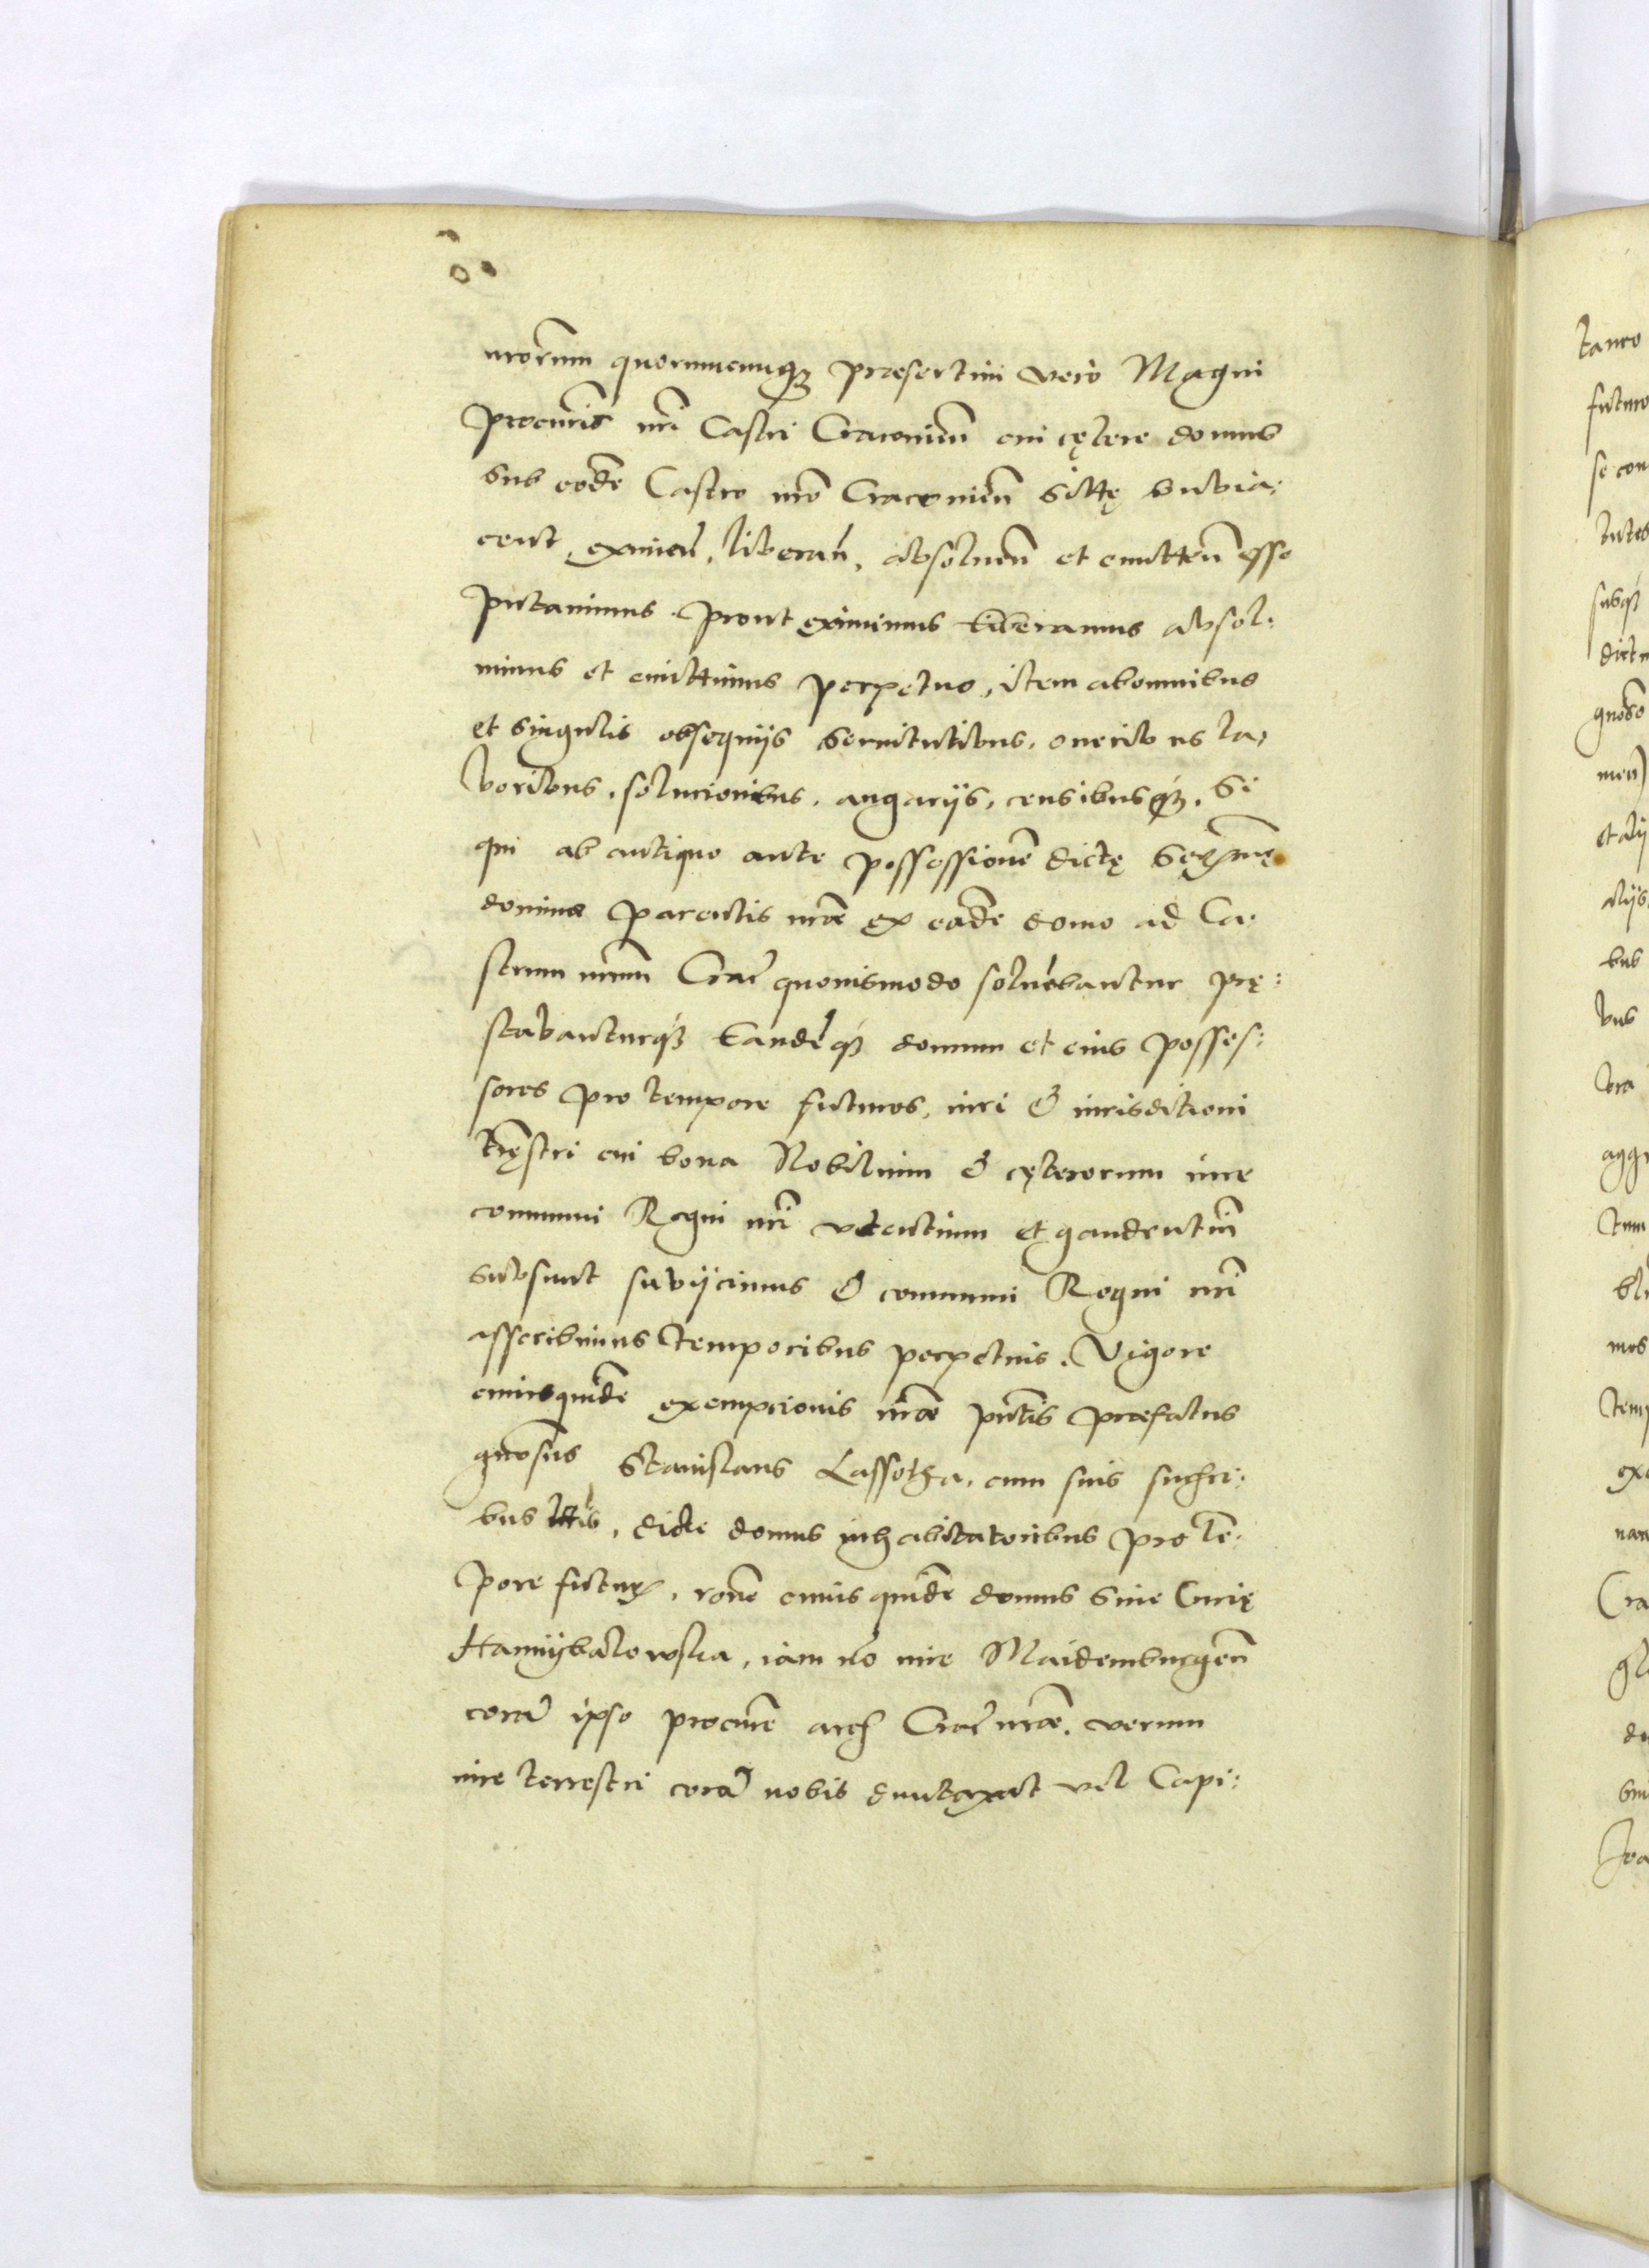 nrorum quorumcunq3 praesertim vero Magni
procuris nri Castri Cracouien cui cętere domus
sub eode Castro nro Cracouien sittę subia:
cent, eximen, liberan, absoluen et emitten esse
putauimus. prout eximimus liberamus absol:
uimus et emittimus perpetuo, item ab omnibus
et singulis obsequijs seruitutibus, oneribus la:
boribus, solucionibus, angarijs, censibusq3, Si
qui ab antiquo ante possessione dictę Serme
dominae parentis nrae ex eade domo ad Ca:
strum nrum Crac quouismodo soluebantur prę:
stabanturq3 Eandeq3 domum et eius posses:
sores pro tempore futuros, iuri & iurisditioni
trestri cui bona Nobilium & cęterorum iure
communi Regni nri vtentium et gaudentiu
subsunt subijcimus & communi Regni nri
asscribimus temporibus perpetuis. Vigore
cuiusquide exempcionis nrae pntis praefatus
gnosus Stanislaus Lassotha, cum suis succri:
bus lttis, dicte domus inhabitatoribus pro te:
pore futur, rone cuius quide domus siue Curię
Hannÿbalowska, iam no iure Maidemburgen
cora ipso procure arcis Crac nrae, verum
iure terrestri cora nobis duntaxat vel Capi: